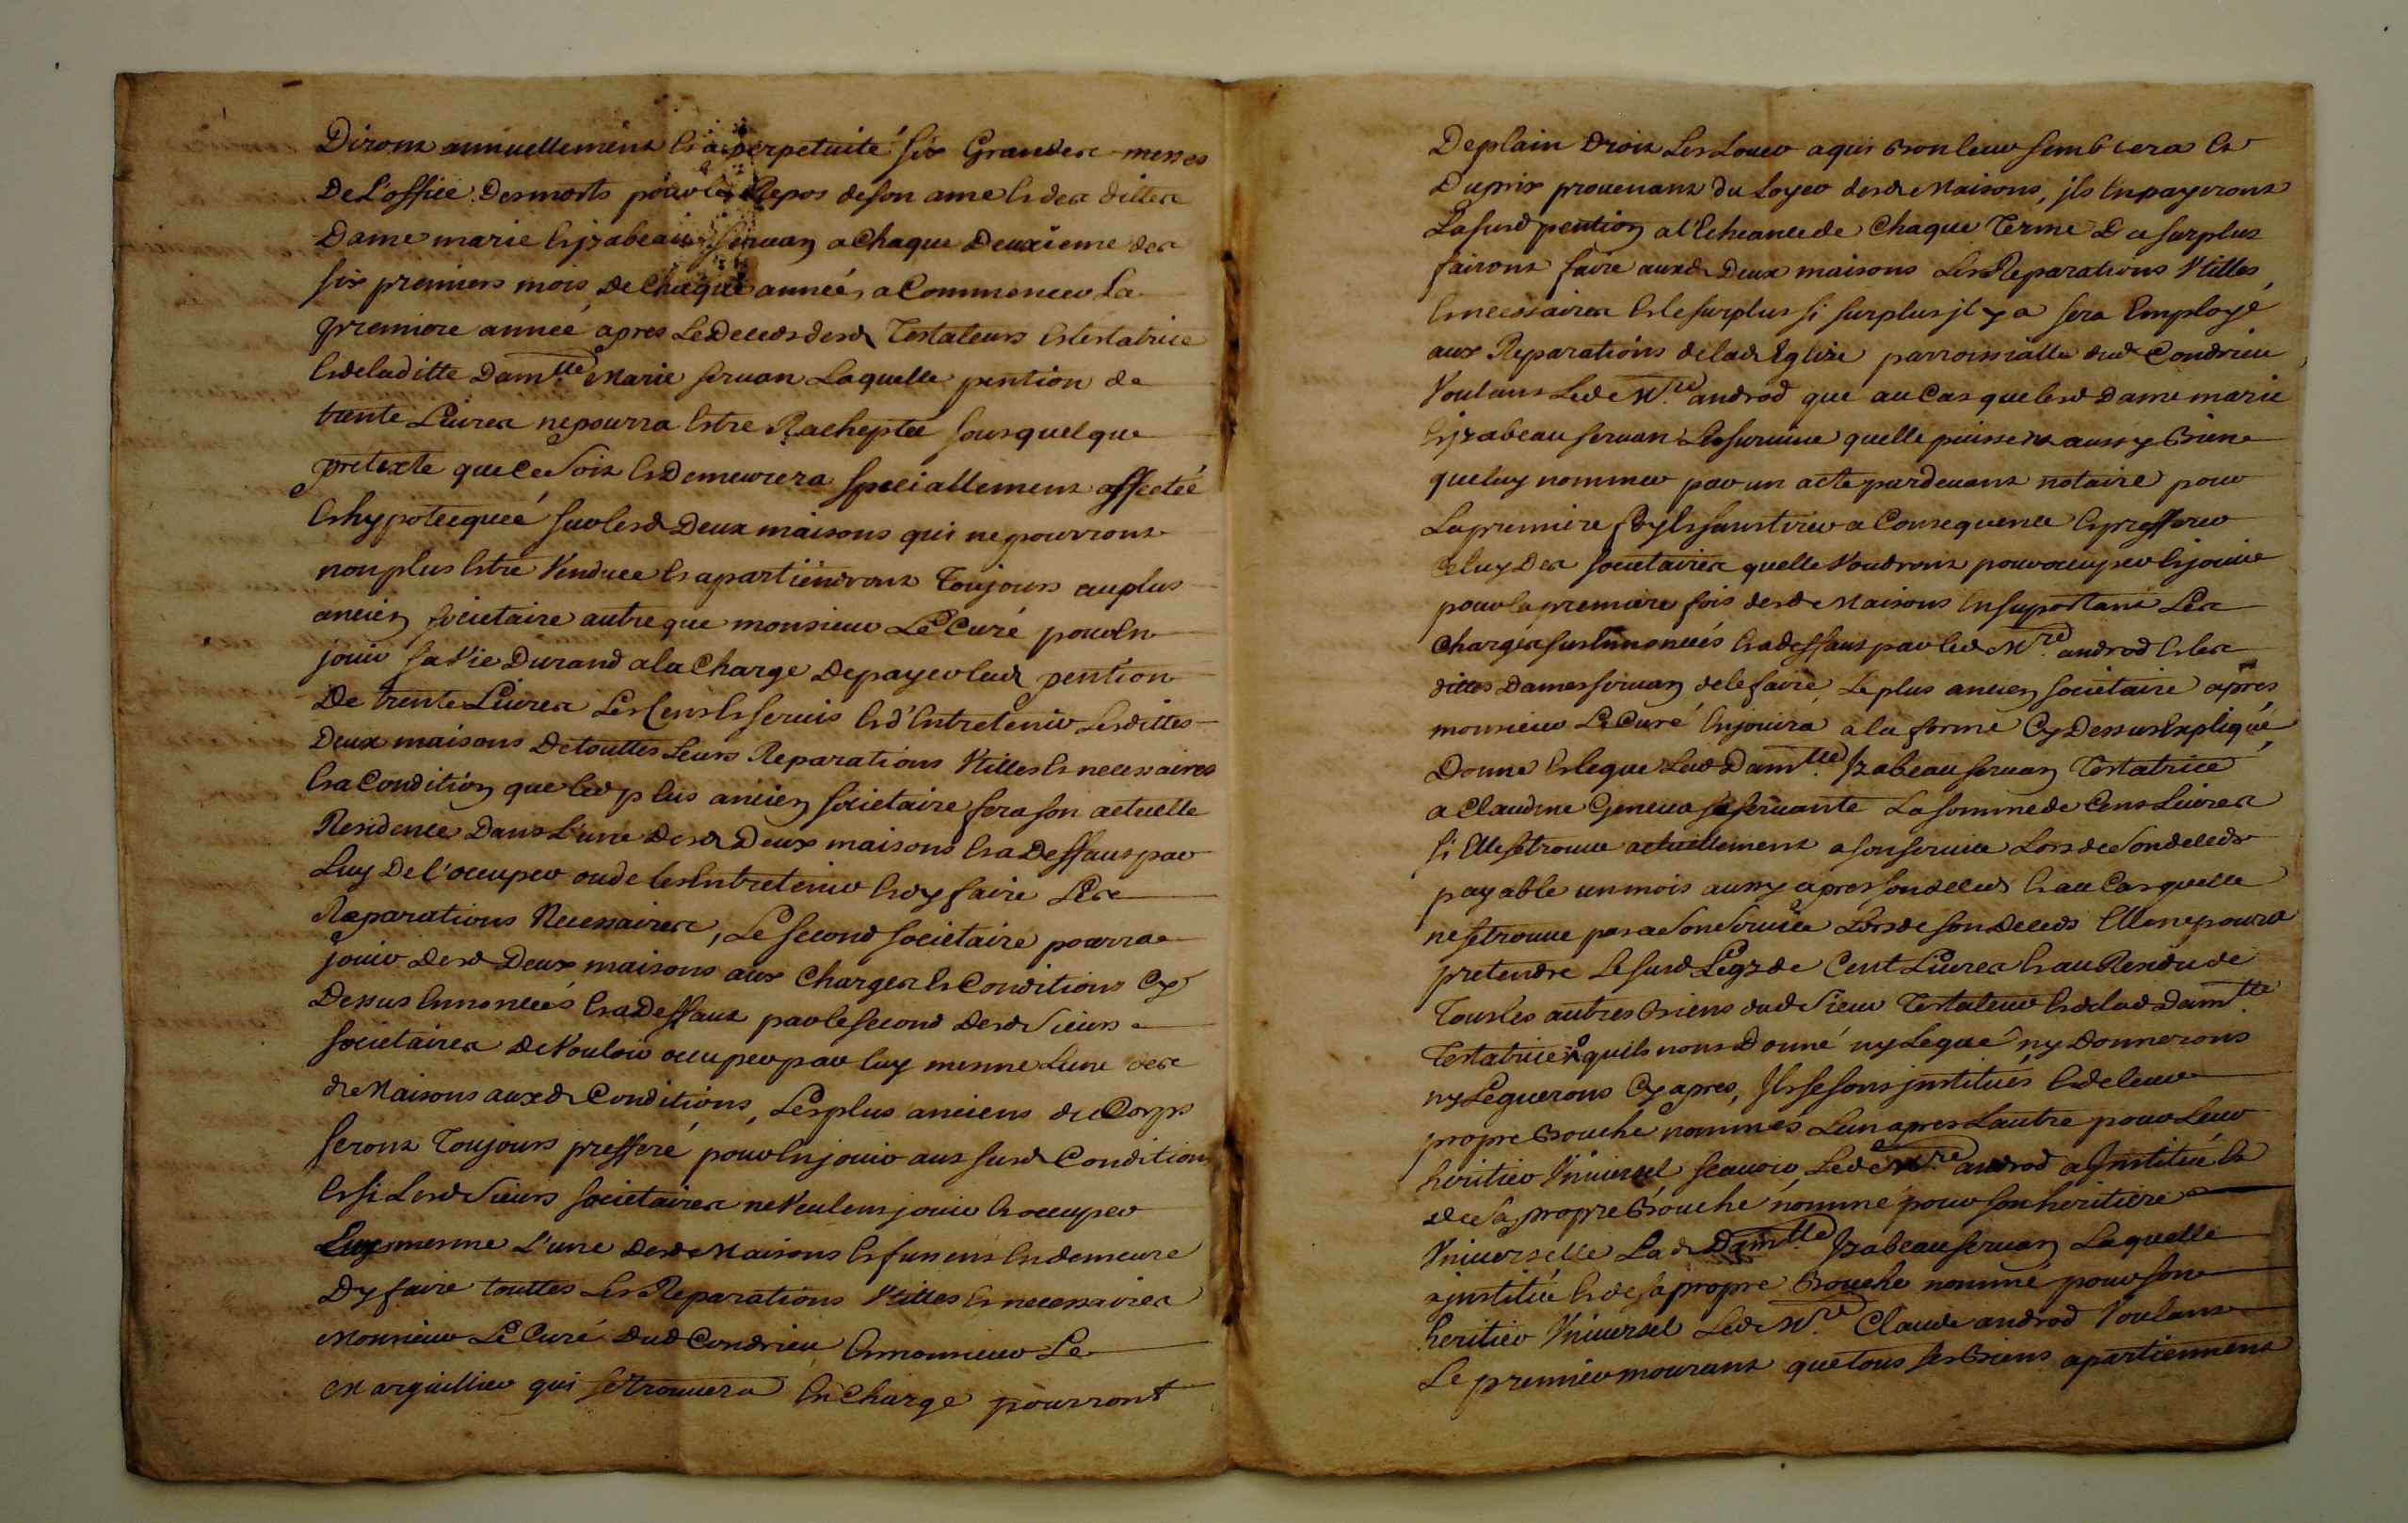 Diront annuellement et a perpetuité six Grandes messes
De L'office Des morts pour le Repos de son ame et des dittes
Dame marie Eyzabeau Servan a Chaque Deuxieme des
six premiers mois de Chaque année, a Commencer La
premiere année apres Le Deceds desd Testateurs et testatrice
et de laditte Damlle Marie Servan Laquelle pention de
trente Livres ne pourra Estre Racheptée sous quelque
pretexte que Ce Soit et Demeurera speciallement affectée
et hypotecquée sur lesd Deux maisons qui ne pourront
non plus Estre Vendues et apartiendront Toujours au plus
ancien societaire autre que monsieur Le Curé pour En
jouir sa Vie Durand a la Charge De payer lad pention
De trente Livres Les Cens et servis et d'Entretenir Lesdittes
Deux maisons De touttes Leurs Reparations Utilles et necessaires
et a Condition que led plus ancien societaire fera son actuelle
Residence Dans L'une Desd Deux maisons et a Deffaut par
Luy De l'occuper ou de les Entretenir et y faire Les
Reparations Necessaires, Le second societaire pourra
jouir Desd Deux maisons aux Charges et Conditions Cy
Dessus Ennoncés et a Deffaut par le second Desd Sieurs
societaires de Vouloir occuper par luy mesme L'une des
d Maisons auxd Conditions, Les plus anciens du Corps
seront Toujours prefferé pour En jouir aux susd Conditions
et si Lesd Sieurs societaires ne Veulent jouir et occuper
Luy mesme L'une Desd Maisons et fussent En demeure
D'y faire touttes Les Reparations Utilles et necessaires
Monsieur Le Curé Dud Condrieu et monsieur Le
Marguillier qui se trouvera En Charge pourront
De plain Droit Les Louer a qui Bon leur semblera et
Du prix provenant du Loyer desd Maisons, ils En payeront
La susd pention a l'Echeance de Chaque Terme Du surplus
fairont faire auxd Deux maisons Les Reparations Utilles
et necessaires et le surplus si surplus il y a sera Employé
aux Reparations de lad Eglise parroissialle dud Condrieu
Voulant Led Mre androd que au Cas que lesd Dame marie
Eyzabeau servan Le survive quelle puissent aussy Bien
que luy nommer par un acte pardevant notaire pour
La premiere foy Et sans tirer a Consequence Et prefferer
Celuy Des societaires quelle Voudront pour occuper Et jouir
pour la premiere fois desd Maisons En suportant Les
Charges sus Ennoncés Et a deffaut par led Mre androd Et les
dittes Dames servan de le faire, Le plus ancien societaire apres
monsieur Le Curé En jouira a la forme Cy Dessus Expliqué,
Donne Et legue Lad Damlle Izabeau servan Testatrice
a Claudine Geneva sa servante La somme de Cent Livres
si Elle se trouve actuellement a son service Lors de Son deceds
payable un mois aussy apres son deceds Et au Cas quelle
ne se trouve pas a Son Service Lors de son Deceds Elle ne poura
pretendre Le susd Legs de Cent Livres Et au Residu de
Tous les autres Biens dud Sieur Testateur Et de lad Damlle
Testatrice quils nont Donné ny Legué ny Donneront
ny Legueront Cy apres, Ils se sont institués Et de leur
propre Bouche nommés L'un apres L'autre pour Leur
heritier Universel scavoir, Led Mre androd a Institué Et
de Sa propre Bouche nommé pour son heritiere
Universelle Lad Damlle Izabeau servan Laquelle
a institué Et de sa propre Bouche nommé pour son
heritier Universel Led Mre Claude androd Voulant
Le premier mourant que tous ses Biens apartiennent